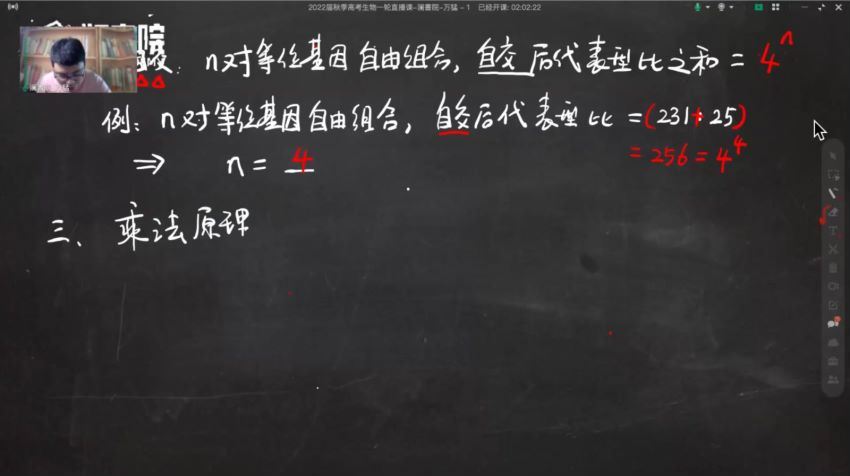 2022届秋季高考生物一轮直播课-澜書院-万猛 - 1 已经开课: 02:02:22
n对等位基因自由组合，自交后代表型比之和 = 4^n
例：n对等位基因自由组合，自交后代表型比 = (231+25)
= 256 = 4^4
⇒ n = 4
三、乘法原理